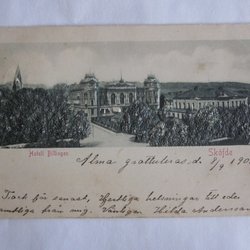 Hotell Billingen Skofde
Alma gratuleras d. 8/9 190
Tack för senast, Hjertliga helsningar till eder
samtliga från mig. Vänligen Hilda Andersson